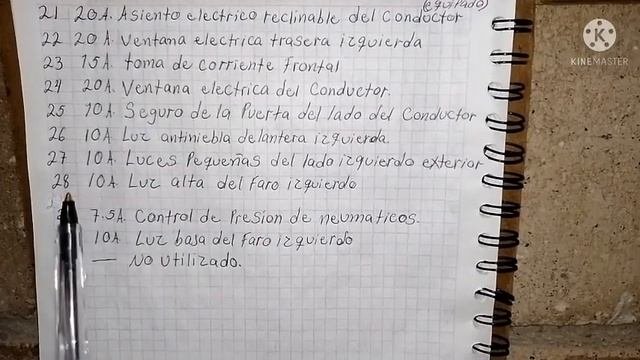 (equipado)
21 20A. Asiento electrico reclinable del Conductor
22 20A. Ventana electrica trasera izquierda
23 15A. toma de corriente frontal
24 20A. Ventana electrica del Conductor.
25 10A. Seguro de la Puerta del lado del Conductor
26 10A. Luz antiniebla delantera izquierda.
27 10A. Luces Pequeñas del lado izquierdo exterior
28 10A. Luz alta del Faro izquierdo
7.5A. Control de Presion de neumaticos.
10A. Luz baja del Faro izquierdo
— No utilizado.
KINEMASTER